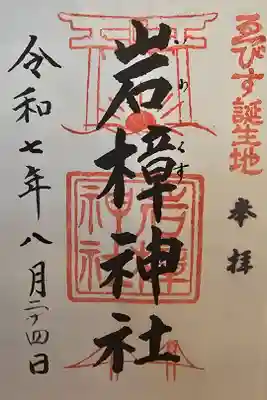 ゑびす誕生地
奉拝
岩樟神社
いわくす
令和七年八月二十四日
岩樟神社